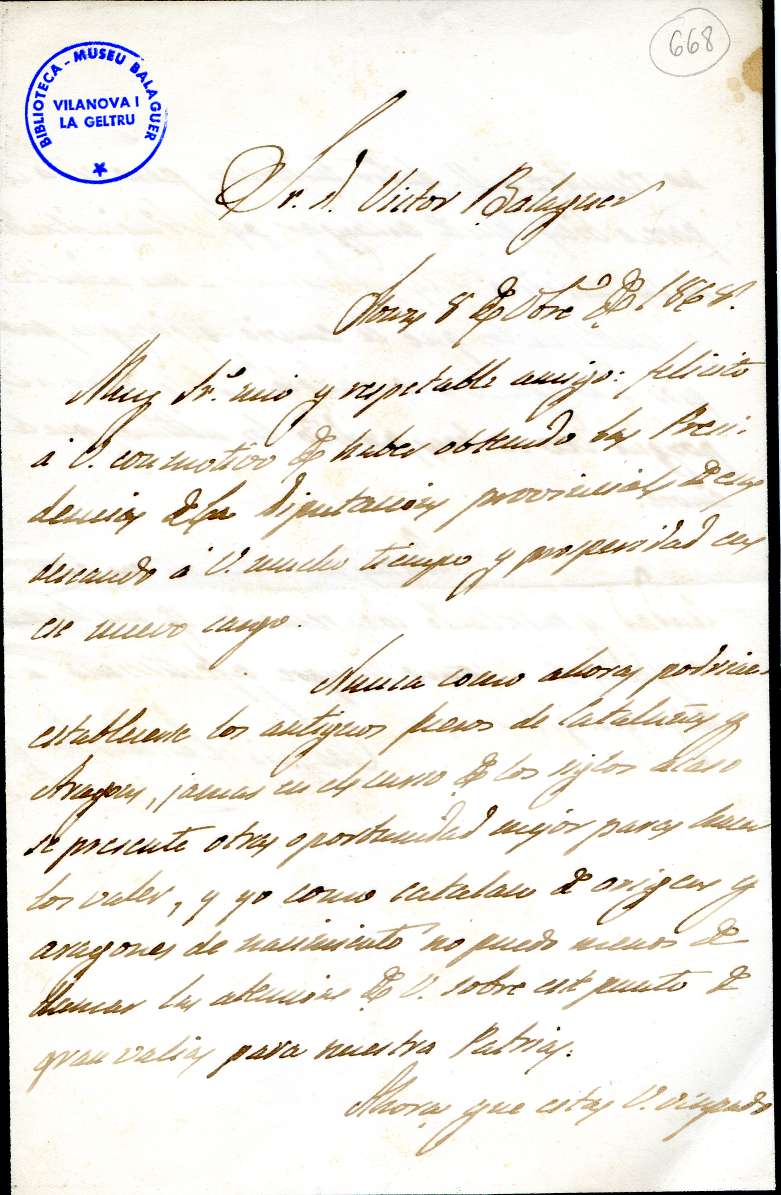 668
BIBLIOTECA - MUSEU BALAGUER
VILANOVA I
LA GELTRU
Sr. D. Victor Balaguer
8 de Obre. de 1868.
Muy Sr. mio y respetable amigo: felicito
á V. con motivo de haber obtenido la Presi-
dencia de la Diputacion provincial de esa
deseando á V. mucho tiempo y prosperidad en
ese nuevo cargo.
Nunca como ahora podrian
establecerse los antiguos fueros de Cataluña y
Aragon, jamas en el curso de los siglos acaso
se presente otra oportunidad mejor para hacer
los valer, y yo como catalan de origen y
aragones de nacimiento no puedo menos de
llamar la atencion de V. sobre este punto de
gran valia para nuestra Patria.
Ahora que esta V.